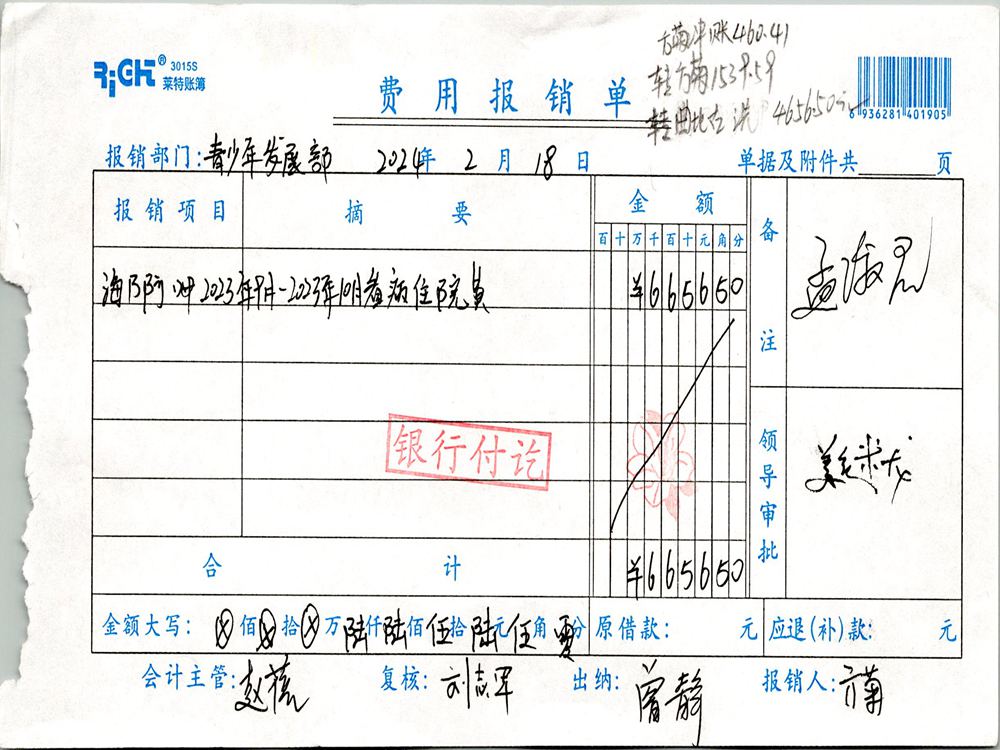 方菊冲账460.41
RiGHT® 3015S
莱特账簿
转方菊1539.59
费用报销单
转曲比古洗 4656.50元
6 936281 401905
报销部门:青少年发展部 2024年2月18日 单据及附件共 页
报销项目 摘要 金额 备注
百十万千百十元角分
海乃阿呷2023年9月-2023年10月看病住院费 ¥665650
孟淑君
银行付讫
领导审批
合计 ¥665650
金额大写: ⊗佰⊗拾⊗万陆仟陆佰伍拾陆元伍角零分 原借款: 元 应退(补)款: 元
会计主管: 赵蓓 复核: 刘志军 出纳: 曾静 报销人: 方菊